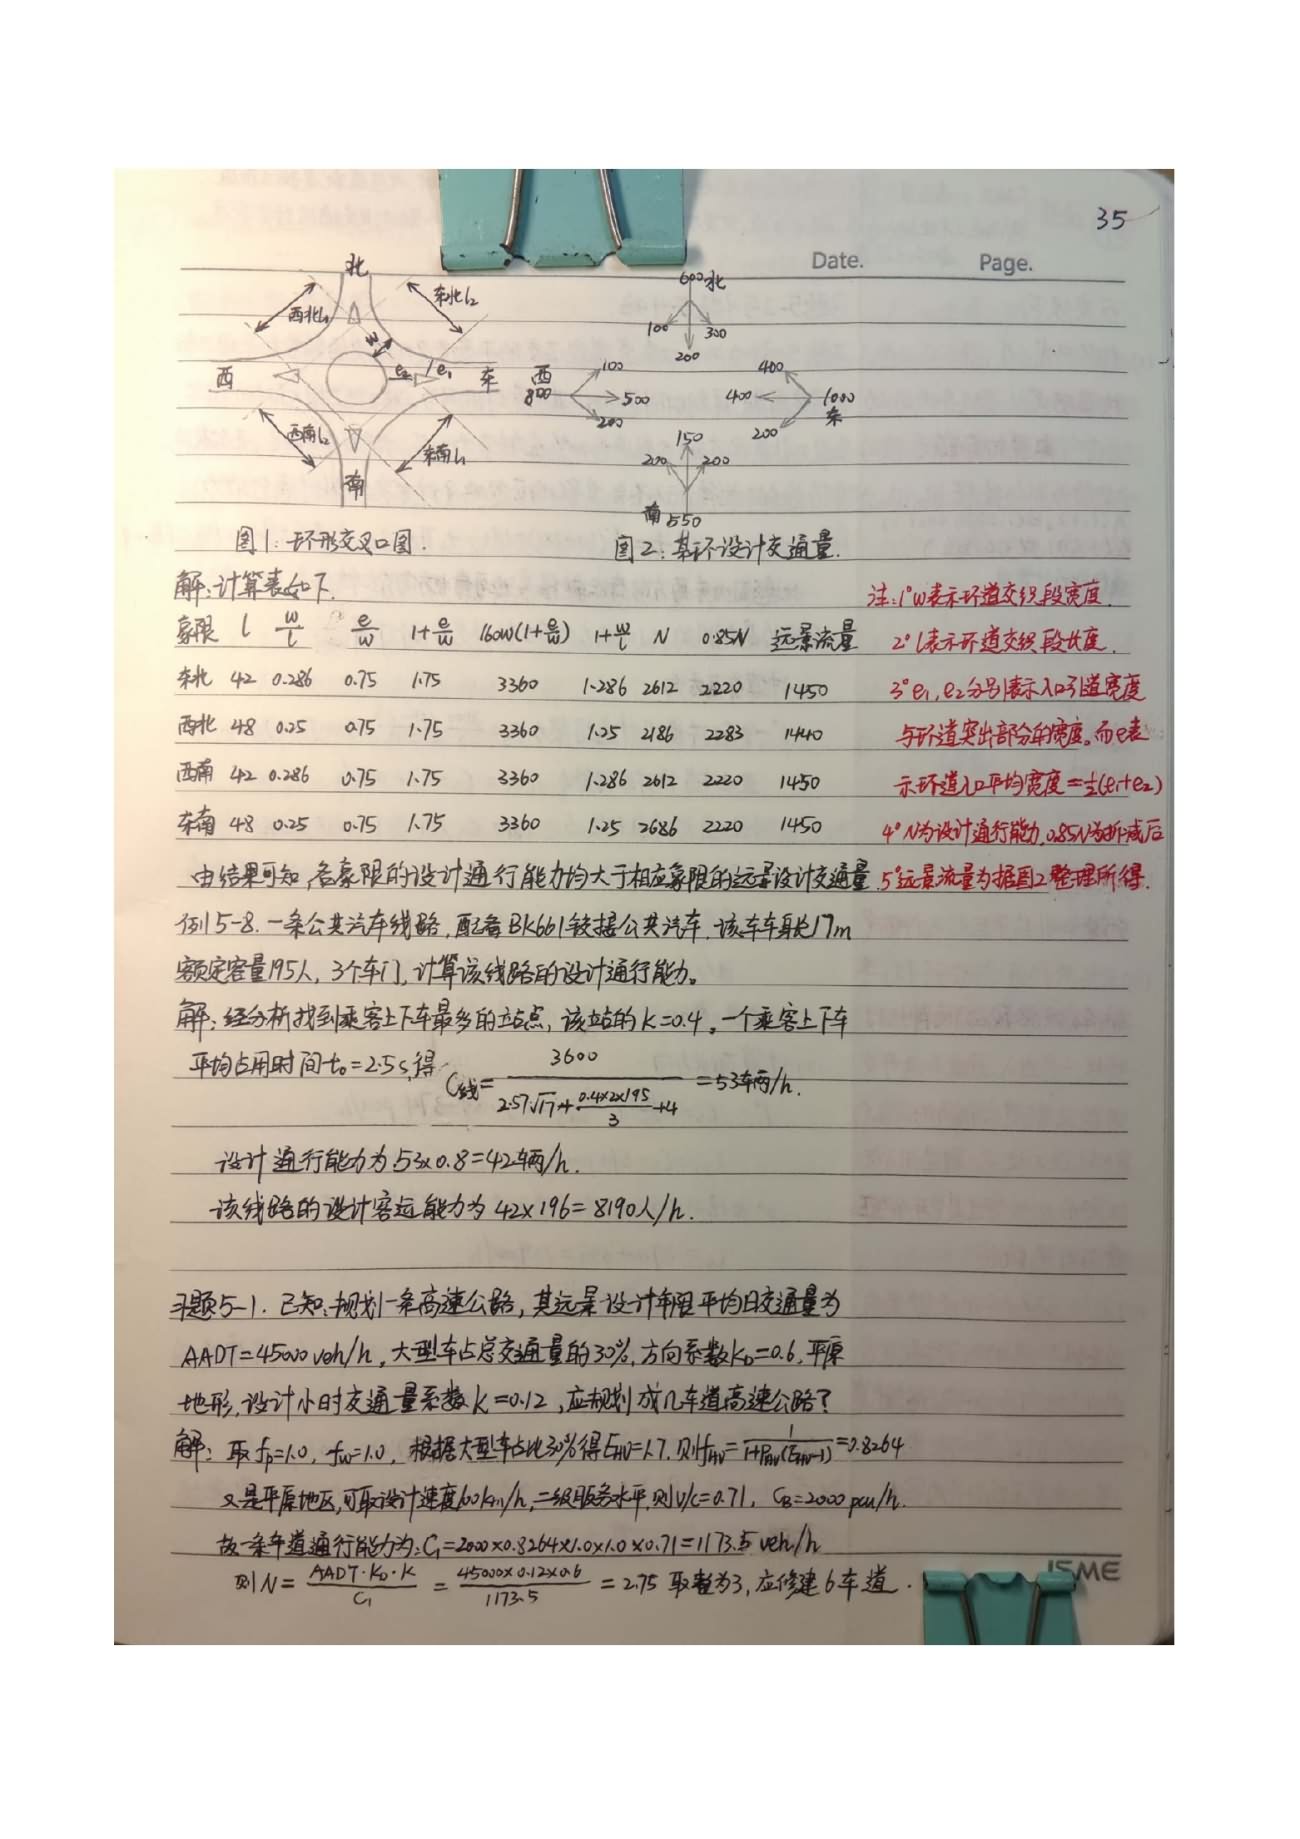 35
Date. Page.
北
西北l₁
东北l₂
w
e₂
e₁
西
东
西南l₂
东南l₁
南
图1:环形交叉口图.
600北
100
300
200
西
800
100
500
200
400
400
1000
东
200
150
200
200
南550
图2:某环设计交通量.
解:计算表如下.
注:1°w表示环道交织段宽度.
象限 l w/l e/w 1+e/w 160w(1+e/w) 1+w/l N 0.85N 远景流量
2°l表示环道交织段长度.
东北 42 0.286 0.75 1.75 3360 1.286 2612 2220 1450
3°e₁,e₂分别表示入口引道宽度
西北 48 0.25 0.75 1.75 3360 1.25 2186 2283 1440
与环道突出部分的宽度。而e表
西南 42 0.286 0.75 1.75 3360 1.286 2612 2220 1450
示环道入口平均宽度=½(e₁+e₂)
东南 48 0.25 0.75 1.75 3360 1.25 2686 2220 1450
4°N为设计通行能力,0.85N为折减后
由结果可知,各象限的设计通行能力均大于相应象限的远景设计交通量.
5°远景流量为据图2整理所得.
例5-8.一条公共汽车线路,配备BK661铰接公共汽车.该车车身长17m
额定容量195人,3个车门,计算该线路的设计通行能力。
解:经分析找到乘客上下车最多的立站点,该站的K=0.4,一个乘客上下车
平均占用时间t₀=2.5s,得 C线=3600/(2.57√17+(0.4×2×195)/3+4)=53车辆/h.
设计通行能力为53×0.8=42车辆/h.
该线路的设计客运能力为42×196=8190人/h.
习题5-1.已知:规划一条高速公路,其远景设计年限平均日交通量为
AADT=45000veh/h,大型车占总交通量的30%,方向系数K_D=0.6,平原
地形,设计小时交通量系数K=0.12,应规划成几车道高速公路?
解:取f_p=1.0,f_w=1.0,根据大型车占比30%得E_HV=1.7.则f_HV=1/(1+P_HV(E_HV-1))=0.8264
又是平原地区,可取设计速度100km/h,二级服务水平,则V/C=0.71,C_B=2000pcu/h.
故一条车道通行能力为:C₁=2000×0.8264×1.0×1.0×0.71=1173.5veh/h
则N=(AADT·K_D·K)/C₁=(45000×0.12×0.6)/1173.5=2.75 取整为3,应修建6车道.
ISME